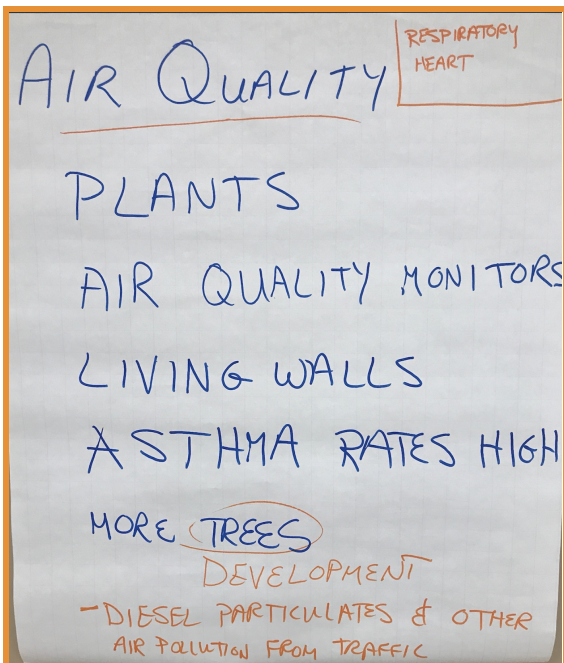 AIR QUALITY
RESPIRATORY
HEART
PLANTS
AIR QUALITY MONITORS
LIVING WALLS
ASTHMA RATES HIGH
MORE TREES
DEVELOPMENT
- DIESEL PARTICULATES & OTHER
AIR POLLUTION FROM TRAFFIC